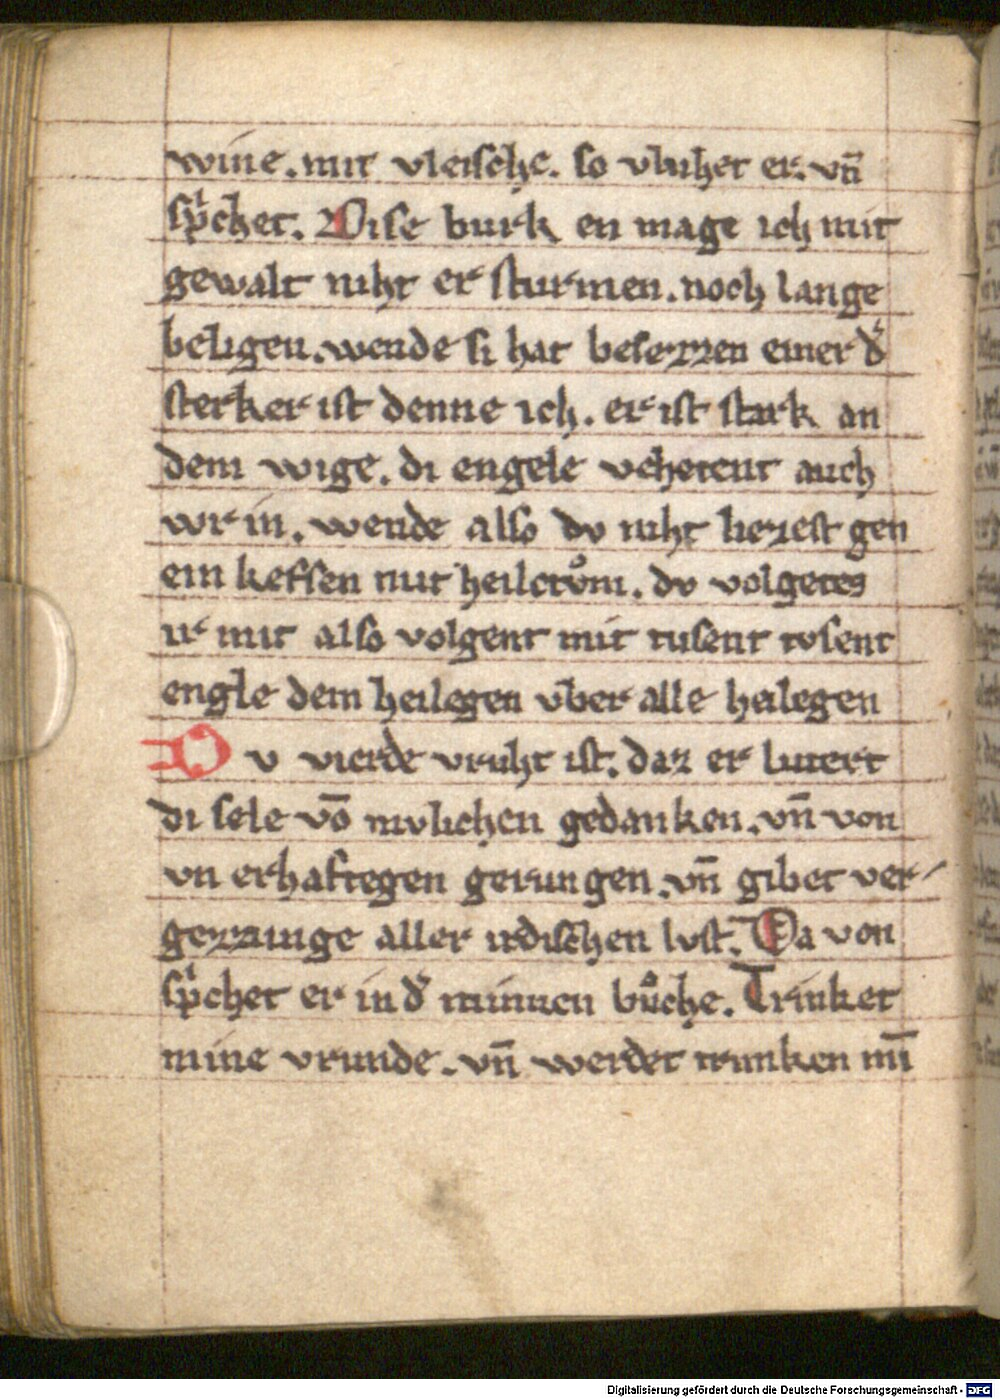 wine. mit vleische. so vluhet er. vn̄
sp͛chet. Dise burk en mage ich mit
gewalt niht er sturmen. noch lange
beligen. wende si hat besezzen einer d͛
sterker ist denne ich. er ist stark an
dem wige. di engele vchetent auch
wr in. wende also dv niht liezest gen
ein keffen mit heilctvͦm. dv volgetes
ir mit also volgent mit tusent tvsent
engle dem heilegen vber alle heilegen
Dv vierde vruht ist. daz er lutert
di sele vō mvlichen gedanken. vn̄ von
vn erhaftegen gerungen. vn̄ gibet ver⸗
gezzunge aller irdischen lvst. Da von
sp͛chet er in d͛ minnen buͦche. Trinket
mine vrunde. vn̄ werdet trunken mī
Digitalisierung gefördert durch die Deutsche Forschungsgemeinschaft - DFG